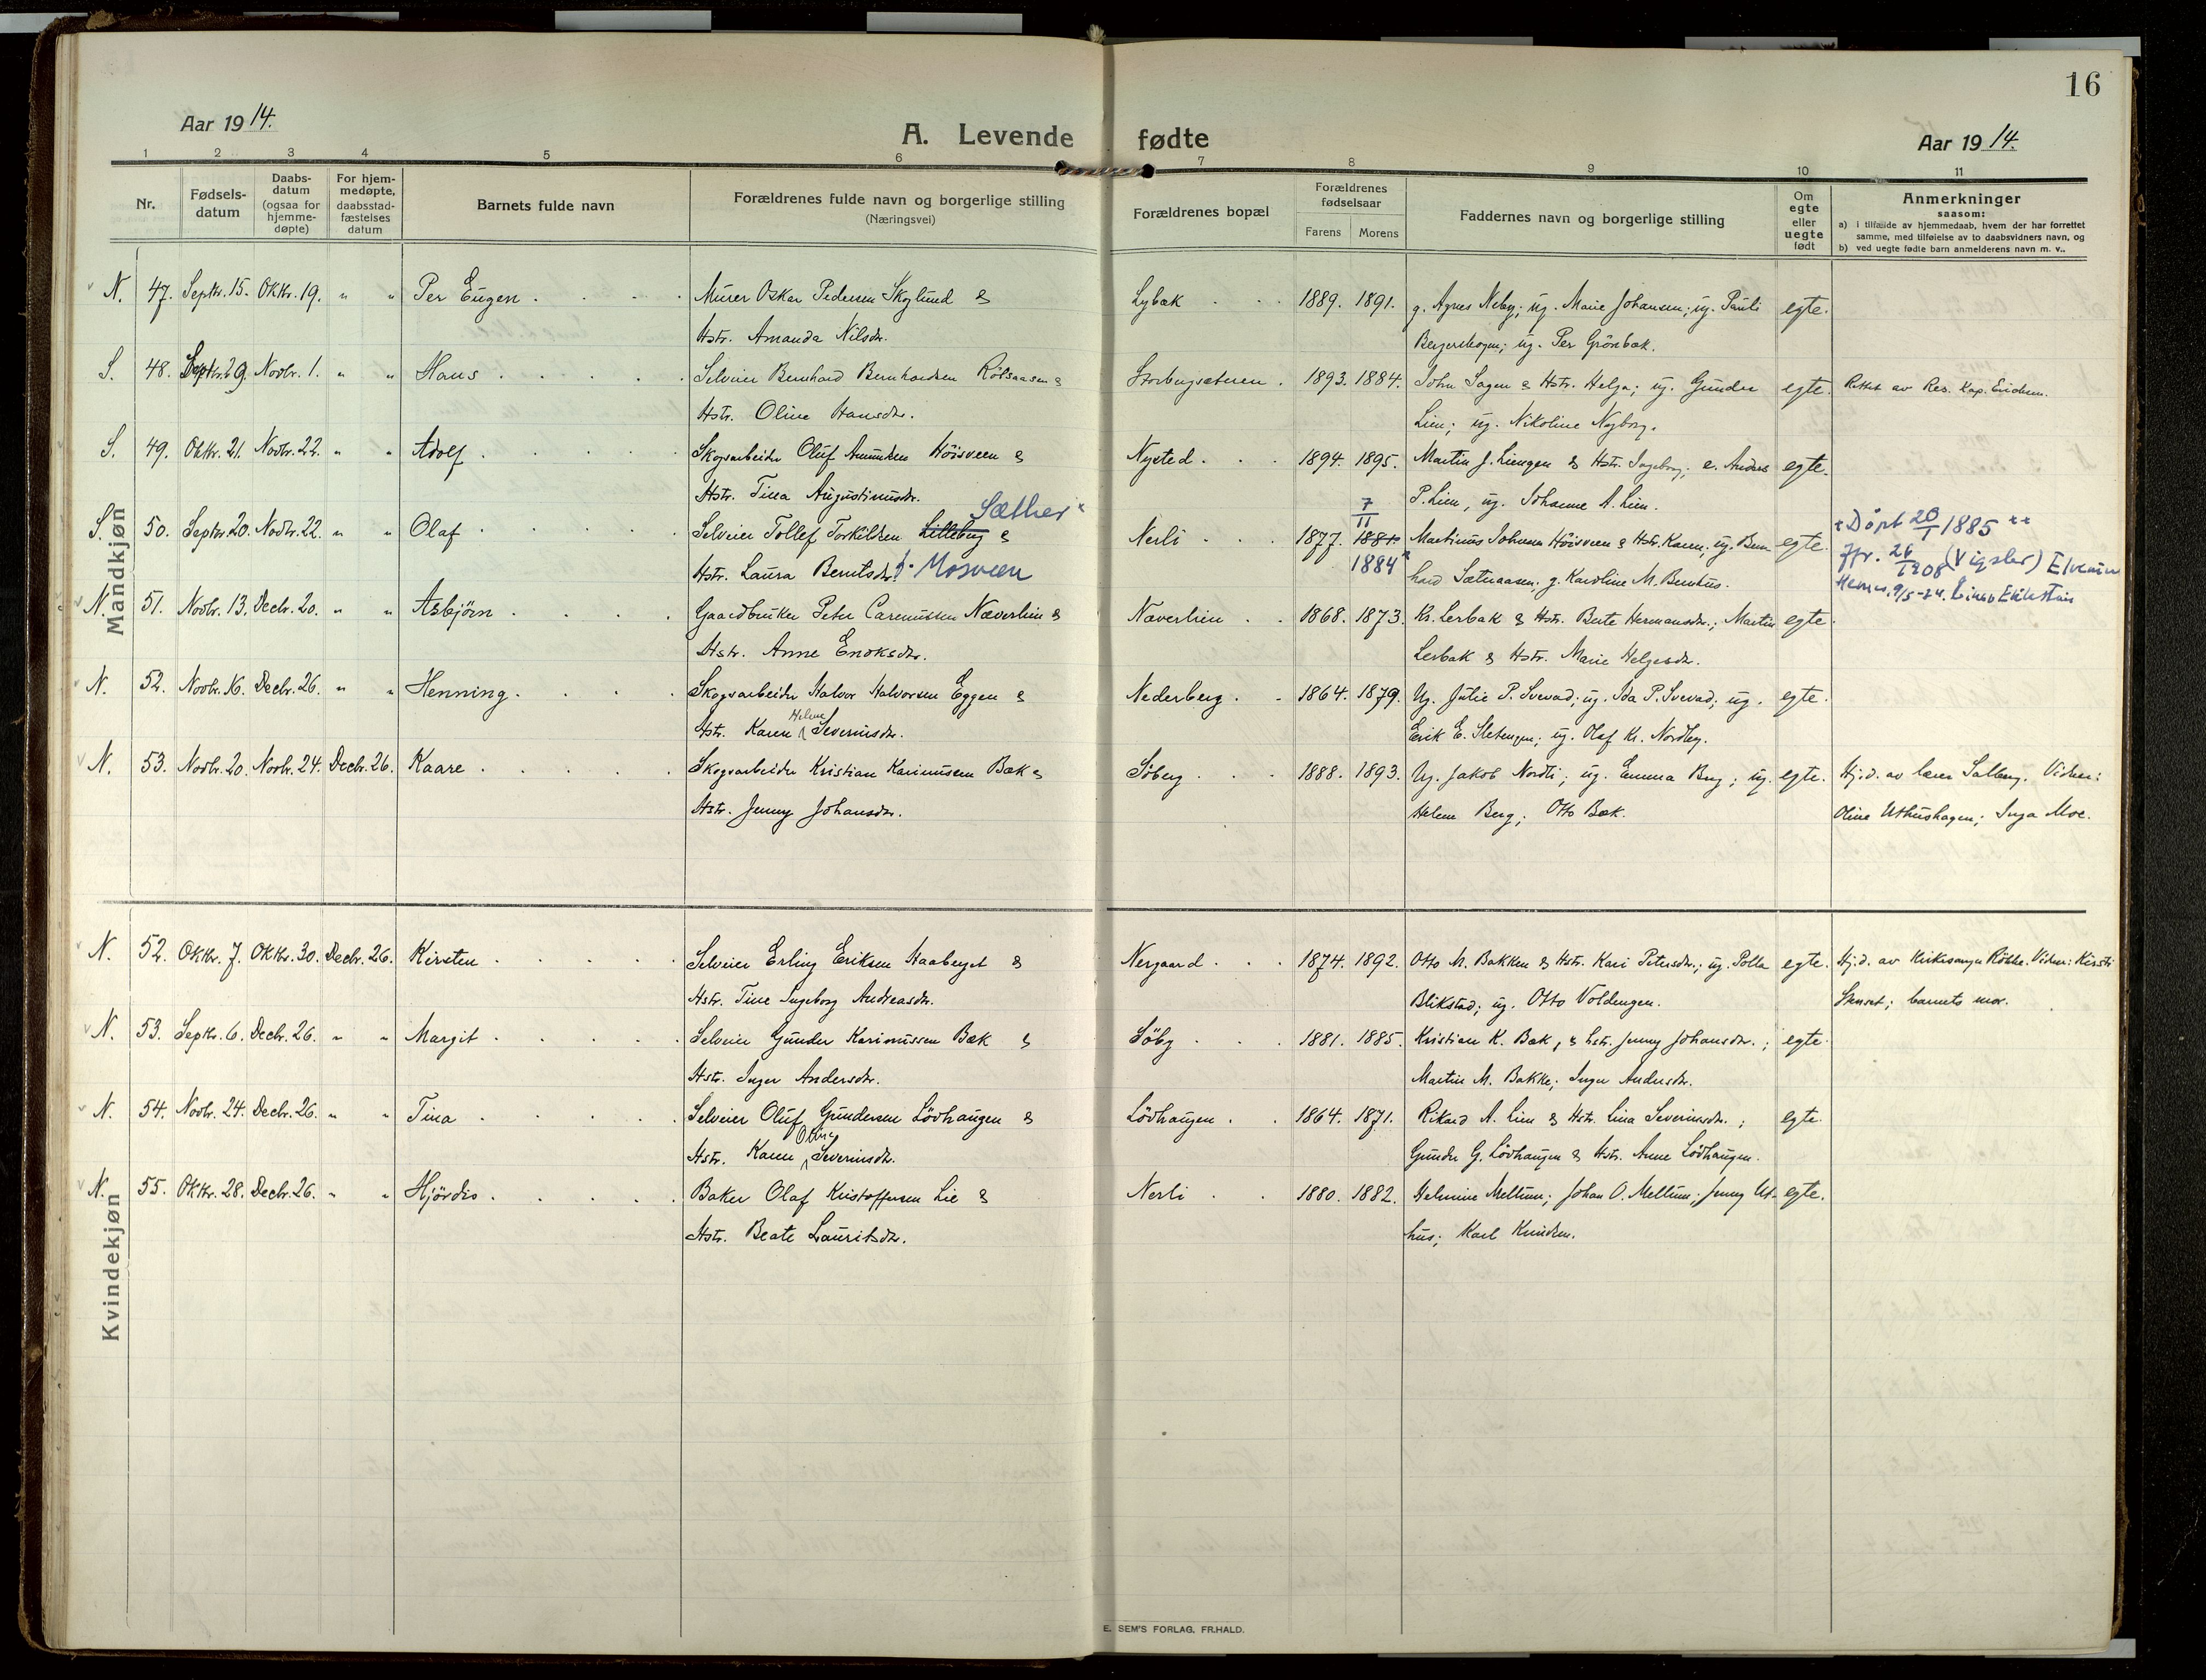 16
Aar 1914.
A. Levende fødte
Aar 1914.
1 2 3 4 5 6 7 8 9 10 11
Nr.
Fødsels-
datum
Daabs-
datum
(ogsaa for
hjemme-
døpte)
For hjem-
medøpte,
daabsstad-
fæstelses
datum
Barnets fulde navn
Forældrenes fulde navn og borgerlige stilling
(Næringsvei)
Forældrenes bopæl
Forældrenes
fødselsaar
Farens Morens
Faddernes navn og borgerlige stilling
Om
egte
eller
uegte
født
Anmerkninger
saasom:
a) i tilfælde av hjemmedaab, hvem der har forrettet
samme, med tilføielse av to daabsvidners navn, og
b) ved uegte fødte barn anmelderens navn m. v..
Mandkjøn
N. 47. Septbr. 15. Oktbr. 19. " " Per Eugen Murer Oskar Pedersen Skoglund & Lybæk 1889. 1891. g. Agnes Neby; ug. Marie Johansen; ug. Pauli egte.
Hstr. Amanda Nilsdr. Bergerskogen; ug. Per Grönbæk.
S. 48. Septbr. 29. Novbr. 1. " " Hans Selveier Bernhard Bernhardsen Rölsaasen & Storbergsæteren. 1893. 1884. John Sagen & Hstr. Helga; ug. Gunder egte. Rettet av Res. Kap.
Hstr. Oline Hansdr. Lien; ug. Nikoline Nyborg.
S. 49. Oktbr. 21. Novbr. 22. " " Adolf Skogsarbeider Oluf Amundsen Höisveen & Nysted 1894. 1895. Martin J. Liengen & Hstr. Ingeborg; e. Anders egte.
Hstr. Tina Augustinusdr. P. Lien, ug. Johanne A. Lien.
Sæther
7/11
S. 50. Septbr. 20. Novbr. 22. " " Olaf Selveier Tollef Torkildsen Lilleberg & Nerli 1877. 1881 Martinus Johnsen Höisveen & Hstr. Karen; ug. Bern- egte. Döpt 20/1 1885
Hstr. Laura Berntsdr. f. Mosveen 1884 hard Sæteraasen; g. Karoline M. Bernhus. Jfr. 26/1 1908 (Vigsler) Elverum
N. 51. Novbr. 13. Decbr. 20. " " Asbjörn Gaardbruker Peter Carenussen Næverlien & Næverlien 1868. 1873. Kr. Lerbak & Hstr. Berte Hermansdr.; Martin egte. 9/5-84.
Hstr. Anne Enoksdr. Lerbak & Hstr. Marie Helgesdr.
N. 52. Novbr. 16. Decbr. 26. " " Henning Skogsarbeider Halvor Halvorsen Eggen & Nederberg 1864. 1879. Ug. Julie P. Svevad; ug. Ida P. Svevad; ug. egte.
Hstr. Karen Helene Severinsdr. Erik E. Sletengen; ug. Olaf Kr. Nordby.
N. 53. Novbr. 20. Novbr. 24. Decbr. 26. Kaare Skogsarbeider Kristian Karinussen Bæk & Söberg 1888. 1893. Ug. Jakob Nordli; ug. Emma Berg; ug. egte. Hj.d. av lærer Salberg. Vidner:
Hstr. Jenny Johansdr. Helene Berg; Otto Bæk. Oline Uthushagen; Inga Moe.
Kvindekjøn
N. 52. Oktbr. 7. Oktbr. 30. Decbr. 26. Kirsten Selveier Erling Eriksen Haaberget & Nergaard 1874. 1892. Otto M. Bakken & Hstr. Kari Petersdr.; ug. Polla egte. Hj.d. av Kirkesanger Röhke. Vidner: Kirsti
Hstr. Tine Ingeborg Andreasdr. Blikstad; ug. Otto Voldengen. Stenset; barnets mor.
N. 53. Septbr. 6. Decbr. 26. " " Margit Selveier Gunder Karinussen Bæk & Söby 1881. 1885. Kristian K. Bæk, & hstr. Jenny Johansdr.; egte.
Hstr. Inger Andersdr. Martin M. Bakke; Inger Andersdr.
N. 54. Novbr. 24. Decbr. 26. " " Tina Selveier Oluf Gundersen Lövhaugen & Lövhaugen 1864. 1871. Rikard A. Lien & Hstr. Lina Severinsdr.; egte.
Hstr. Karen Oline Severinsdr. Gunder G. Lövhaugen & Hstr. Anne Lövhaugen.
N. 55. Oktbr. 28. Decbr. 26. " " Hjördis Baker Olaf Kristoffersen Lie & Nerli 1880. 1882. Helmine Mellum; Johan O. Mellum; Jenny Ut- egte.
Hstr. Beate Lauritsdr. hus; Karl Knudsen.
E. SEM'S FORLAG, FR.HALD.